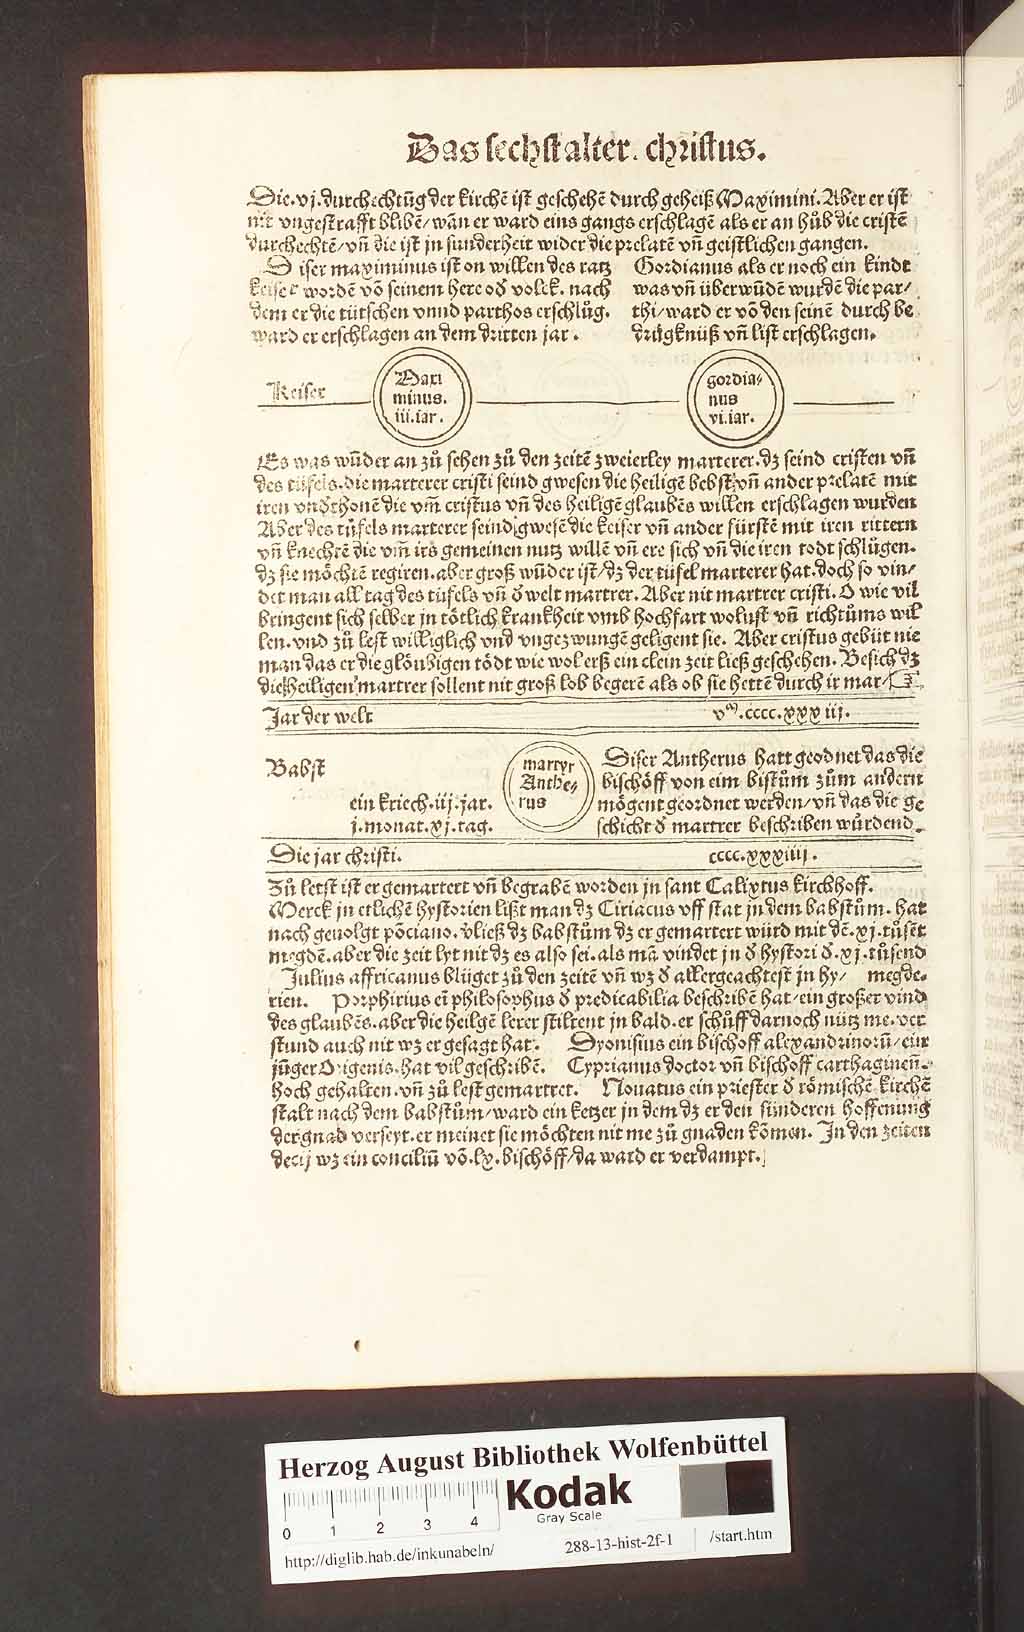 Das sechst alter. christus.
Die .vj. durchechtūg der kirchē ist geschehē durch geheiß Maximini. Aber er ist
nit vngestrafft blibē/ wān er ward eins gangs erschlagē als er an hůb die cristē
durchechtē/ vn̄ die ist jn sunderheit wider die prelatē vn̄ geistlichen gangen.
Diser maximinus ist on willen des ratz
keiser wordē vō seinem here od̄ volck. nach
dem er die tütschen vnnd parthos erschlůg.
ward er erschlagen an dem dritten jar.
Gordianus als er noch ein kindt
was vn̄ überwūdē wurdē die par/
thi/ ward er vō den seinē durch be
drügknüß vn̄ list erschlagen.
Keiser
Maxi
minus.
iii. iar.
gordia/
nus
vi. iar.
Es was wūder an zů sehen zů den zeitē zweierley marterer. dz seind cristen vn̄
des tüfels. die marterer cristi seind gwesen die heiligē bebst/ vn̄ ander prelatē mit
iren vnd̄thonē die vm̄ cristus vn̄ des heiligē glaubēs willen erschlagen wurden
Aber des tüfels marterer seind gwesē die keiser vn̄ ander fürstē mit iren rittern
vn̄ knechtē die vm̄ irs gemeinen nutz willē vn̄ ere sich vn̄ die iren todt schlůgen.
dz sie möchtē regiren. aber groß wūder ist/ dz der tüfel marterer hat. doch so vin/
det man all tag des tüfels vn̄ d̄ welt martrer. Aber nit martrer cristi. O wie vil
bringent sich selber jn tötlich kranckheit vmb hochfart wolust vn̄ richtůms wil
len. vnd zů lest williglich vnd vngezwungē geligent sie. Aber cristus gebüt nie
man das er die glöubigen tödt wie wol erß ein clein zeit ließ geschehen. Besich dz
die heiligen martrer sollent nit groß lob begerē als ob sie hettē durch ir mar/ ☞
Jar der welt
vᵐ.cccc.xxxiij.
Babst
ein kriech. iij. jar.
j. monat. xj. tag.
martyr
Anthe/
rus
Diser Antherus hatt geordnet das die
bischöff von eim bistům zům andern
mögent geordnet werden/ vn̄ das die ge
schicht d̄ martrer beschriben würdend.
Die jar christi.
cccc.xxxiiij.
Zů letst ist er gemartert vn̄ begrabē worden jn sant Calixtus kirchhoff.
Merck jn etlichē hystorien lißt man dz Ciriacus vff stat jn dem babstům. hat
nach geuolgt pōciano. v̄ließ dz babstům dz er gemartert würd mit dē .xj. tůsēt
megdē. aber die zeit lyt nit dz es also sei. als mā vindet jn d̄ hystori d̄ .xj. tůsend
Julius affricanus blüget zů den zeitē vn̄ wz d̄ allergeachtest jn hy/ megde.
rien. Porphirius eī philosophus d̄ predicabilia beschribē hat/ ein großer vind
des glaubēs. aber die heilgē lerer stiltent jn bald. er schůff darnoch nütz me. ver
stund auch nit wz er gesagt hat. Dyonisius ein bischoff alexandrinorū/ ein
jūger Origenis. hat vil geschribē. Cyprianus doctor vn̄ bischoff carthaginen̄.
hoch gehalten. vn̄ zů lest gemartret. Nouatus ein priester d̄ römischē kirchē
stalt nach dem babstům/ ward ein ketzer jn dem dz er den sünderen hoffenung
der gnad verseyt. er meinet sie möchten nit me zů gnaden kōmen. In den zeiten
decij wz ein conciliū vō .lx. bischöff/ da ward er verdampt.
Herzog August Bibliothek Wolfenbüttel
0 1 2 3 4
Kodak
Gray Scale
http://diglib.hab.de/inkunabeln/ 288-13-hist-2f-1 /start.htm